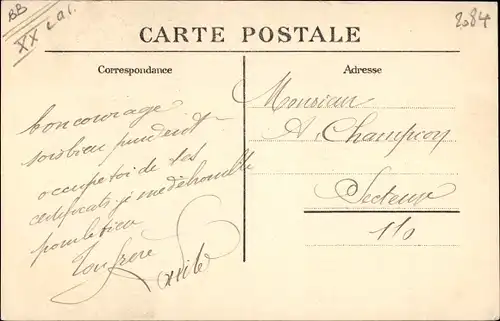 BB
XX
2084
CARTE POSTALE
Correspondance
bon courage
sois bien prudent
occupe toi de tes
certificats je me débrouille
pour le tien
Ton frère
Adresse
Monsieur
A. Champion
Secteur
110